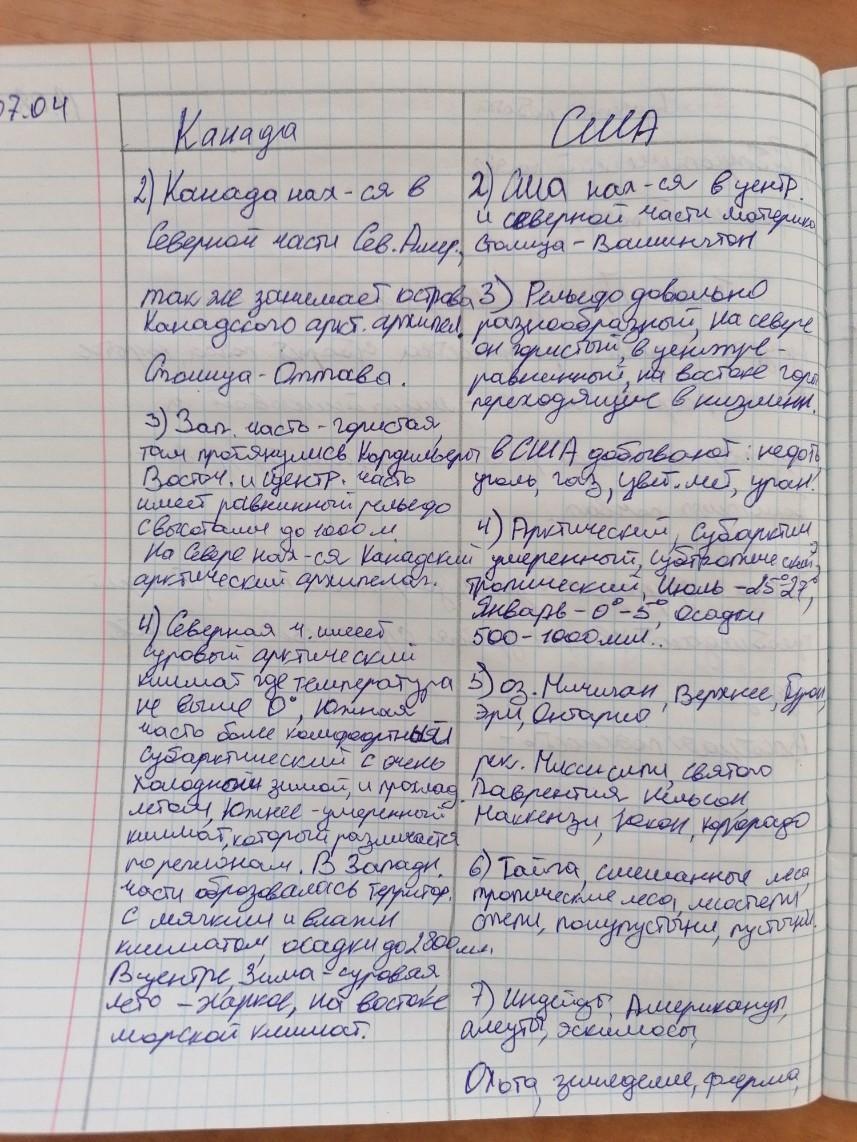 07.04
Канада
2) Канада нах-ся в
Северной части Сев. Амер.,
так же занимает острова
Канадского аркт. архипел.
Столица - Оттава.
3) Зап. часть - гористая,
там протянулись Кордильеры
Восточ. и центр. часть
имеет равнинный рельеф
с высотами до 1000 м.
На Севере нах-ся Канадский
арктический архипелаг.
4) Северная ч. имеет
суровый арктический
климат где температура
не выше 0°, Южная
часть более комфортный
субарктический с очень
холодной зимой, и прохлад.
летом, Южнее - умеренный
климат, который различается
по регионам. В Западн.
части образовалась территор.
с мягким и влажн
климатом, осадки до 2800 мм.
В центре, Зима - суровая,
лето - жаркое, на востоке
морской климат.
США
2) США нах-ся в центр.
и северной части материка
Столица - Вашингтон
3) Рельеф довольно
разнообразный, на севере
он гористый, в центре -
равнинный, на востоке горы
переходящие в низменн.
В США добывают: нефть,
уголь, газ, цвет. мет, уран.
4) Арктический, Субарктич,
умеренный, субтропический,
тропический, Июль - 25° 27°,
Январь - 0° - 5°, осадки
500-1000 мм..
5) оз. Мичиган, Верхнее, Гурон,
Эри, Онтарио.
рек. Миссисипи, святого
Лаврентия, Нельсон,
Маккензи, Юкон, Колорадо
6) Тайга, смешанные леса,
тропические леса, лесостепи,
степи, полупустыни, пустыни.
7) Индейцы, Американцы,
алеуты, эскимосы,
Охота, зимеделие, фпермa,